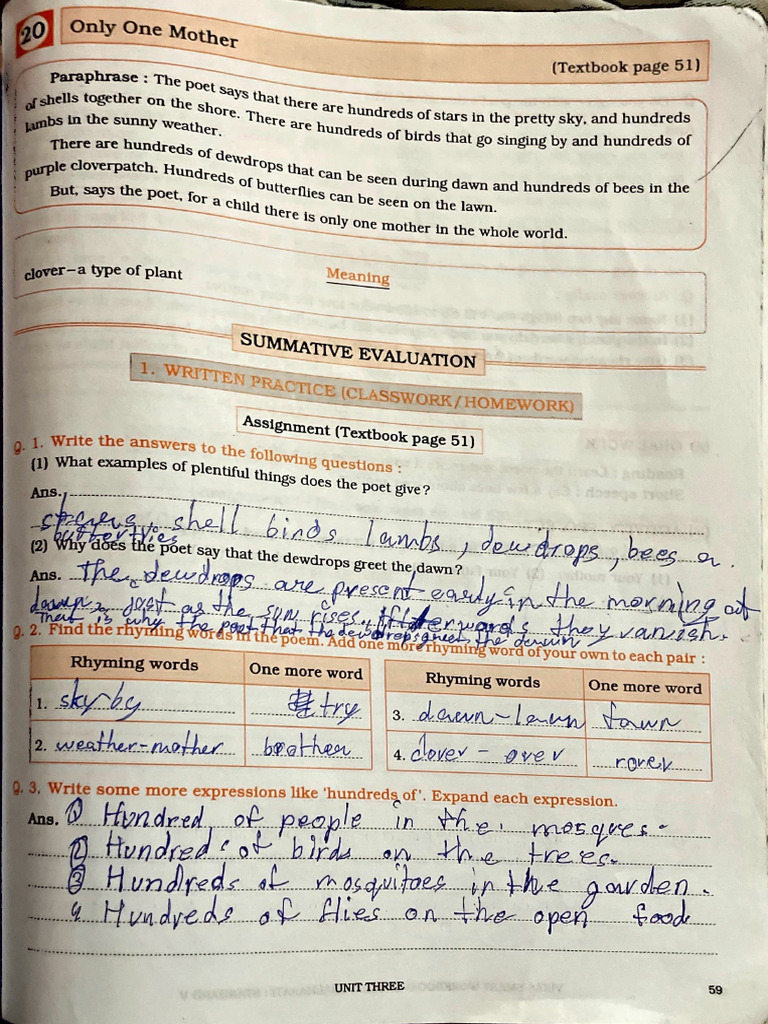 20 Only One Mother
(Textbook page 51)
Paraphrase : The poet says that there are hundreds of stars in the pretty sky, and hundreds
of shells together on the shore. There are hundreds of birds that go singing by and hundreds of
lambs in the sunny weather.
There are hundreds of dewdrops that can be seen during dawn and hundreds of bees in the
purple cloverpatch. Hundreds of butterflies can be seen on the lawn.
But, says the poet, for a child there is only one mother in the whole world.
Meaning
clover–a type of plant
SUMMATIVE EVALUATION
1. WRITTEN PRACTICE (CLASSWORK/HOMEWORK)
Assignment (Textbook page 51)
Q. 1. Write the answers to the following questions :
(1) What examples of plentiful things does the poet give?
Ans.
shell birds lambs, dewdrops, bees
butterflies
(2) Why does the poet say that the dewdrops greet the dawn?
Ans. The dewdrops are present early in the morning at
dawn, Just as the sun rises. Afterwards they vanish.
That is why the poet that the dewdrops greet the dawn
Q. 2. Find the rhyming words in the poem. Add one more rhyming word of your own to each pair :
Rhyming words One more word Rhyming words One more word
1. sky-by try 3. dawn-lawn fawn
2. weather-mother brother 4. clover - over rover
Q. 3. Write some more expressions like 'hundreds of'. Expand each expression.
Ans. ① Hundred of people in the mosques.
② Hundreds of birds on the trees.
③ Hundreds of mosquitoes in the garden.
4 Hundreds of flies on the open food
UNIT THREE
59